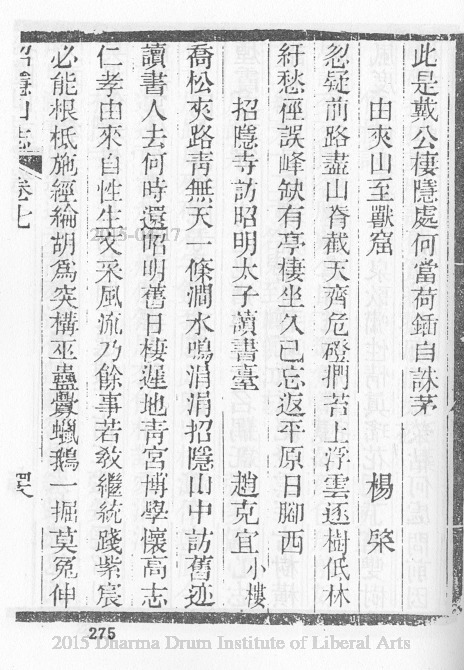 此是戴公棲隱處何當荷鍤自誅茅
由夾山至獸窟　楊棨
忽疑前路盡山脊截天齊危磴捫苔上浮雲逐樹低林
紆愁徑誤峰缺有亭棲坐久已忘返平原日腳西
招隱寺訪昭明太子讀書臺　趙克宜小樓
喬松夾路靑無天一條澗水鳴涓涓招隱山中訪舊迹
讀書人去何時還昭明舊日棲遲地靑宮博學懷高志
仁孝由來自性生文采風流乃餘事若敎繼統踐紫宸
必能根柢施經綸胡爲突構巫蠱釁蠟鵝一掘莫冤伸
招隱山志　卷七
275
2015 Dharma Drum Institute of Liberal Arts